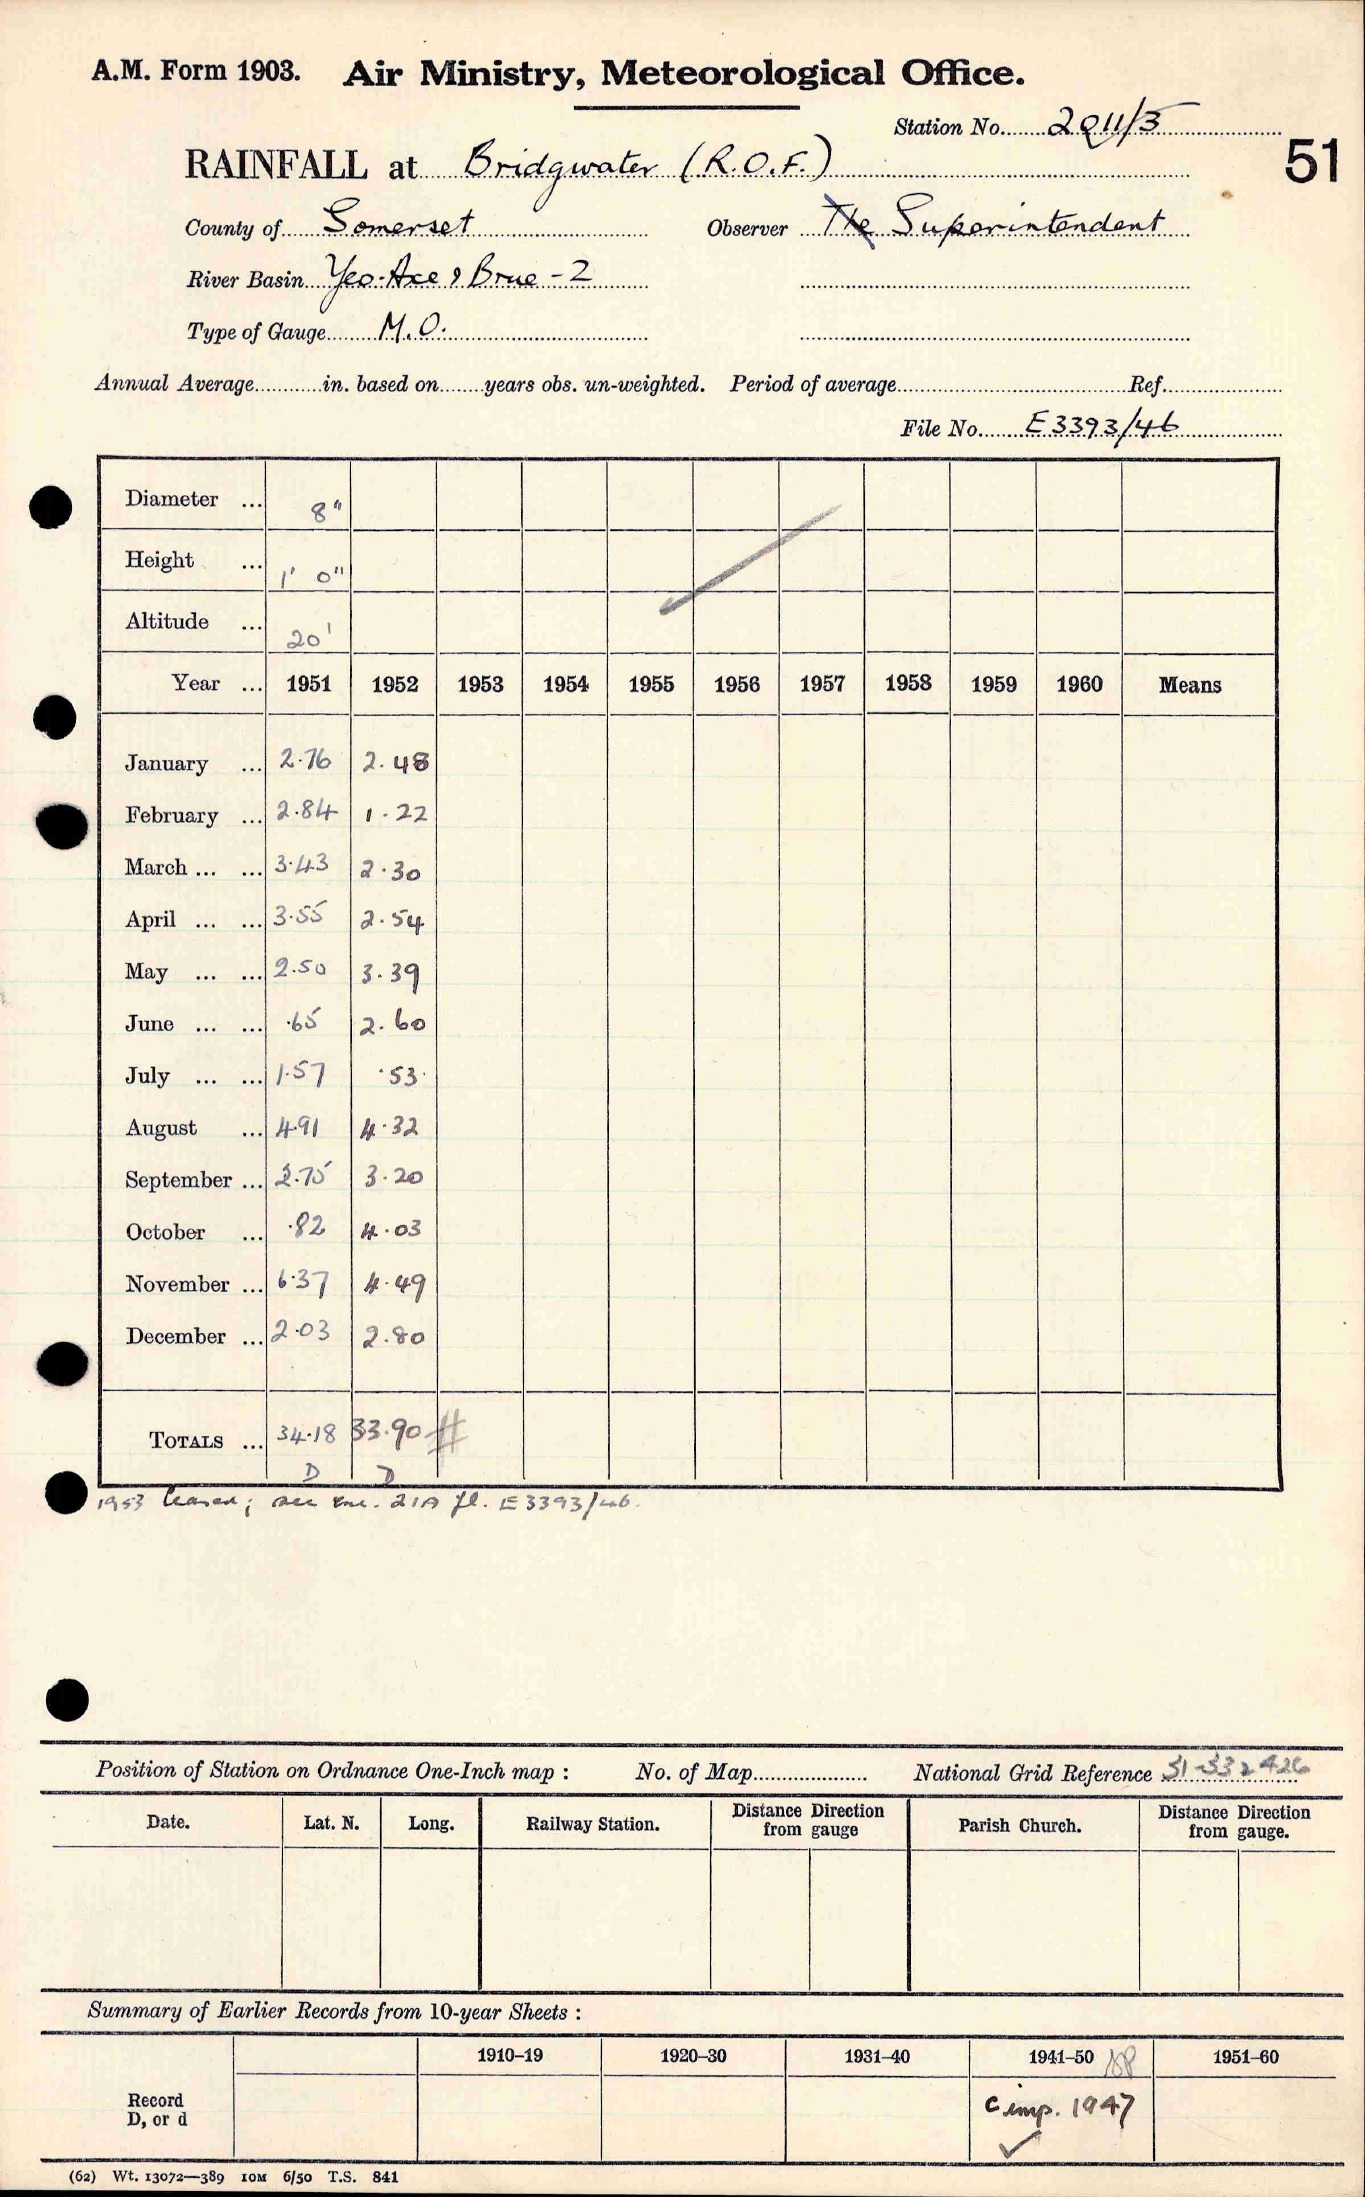 A.M. Form 1903. Air Ministry, Meteorological Office.
Station No. 2011/3
51
RAINFALL at Bridgwater (R.O.F.)
County of Somerset Observer The Superintendent
River Basin Yeo-Axe & Brue - 2
Type of Gauge M.O.
Annual Average in. based on years obs. un-weighted. Period of average Ref.
File No. E3393/46
Diameter ... 8"
Height ... 1' 0"
Altitude ... 20'
Year ... 1951 1952 1953 1954 1955 1956 1957 1958 1959 1960 Means
January ... 2.76 2.48
February ... 2.84 1.22
March ... ... 3.43 2.30
April ... ... 3.55 2.54
May ... ... 2.50 3.39
June ... ... .65 2.60
July ... ... 1.57 .53
August ... 4.91 4.32
September ... 2.75 3.20
October ... .82 4.03
November ... 6.37 4.49
December ... 2.03 2.80
TOTALS ... 34.18 33.90 #
D D
1953 Ceased; see enc. 21A fl. E3393/46.
Position of Station on Ordnance One-Inch map : No. of Map National Grid Reference 31-332426
Date. Lat. N. Long. Railway Station. Distance Direction from gauge Parish Church. Distance Direction from gauge.
Summary of Earlier Records from 10-year Sheets :
1910-19 1920-30 1931-40 1941-50 1951-60
Record
D, or d
C imp. 1947
✓
(62) Wt. 13072—389 10M 6/50 T.S. 841